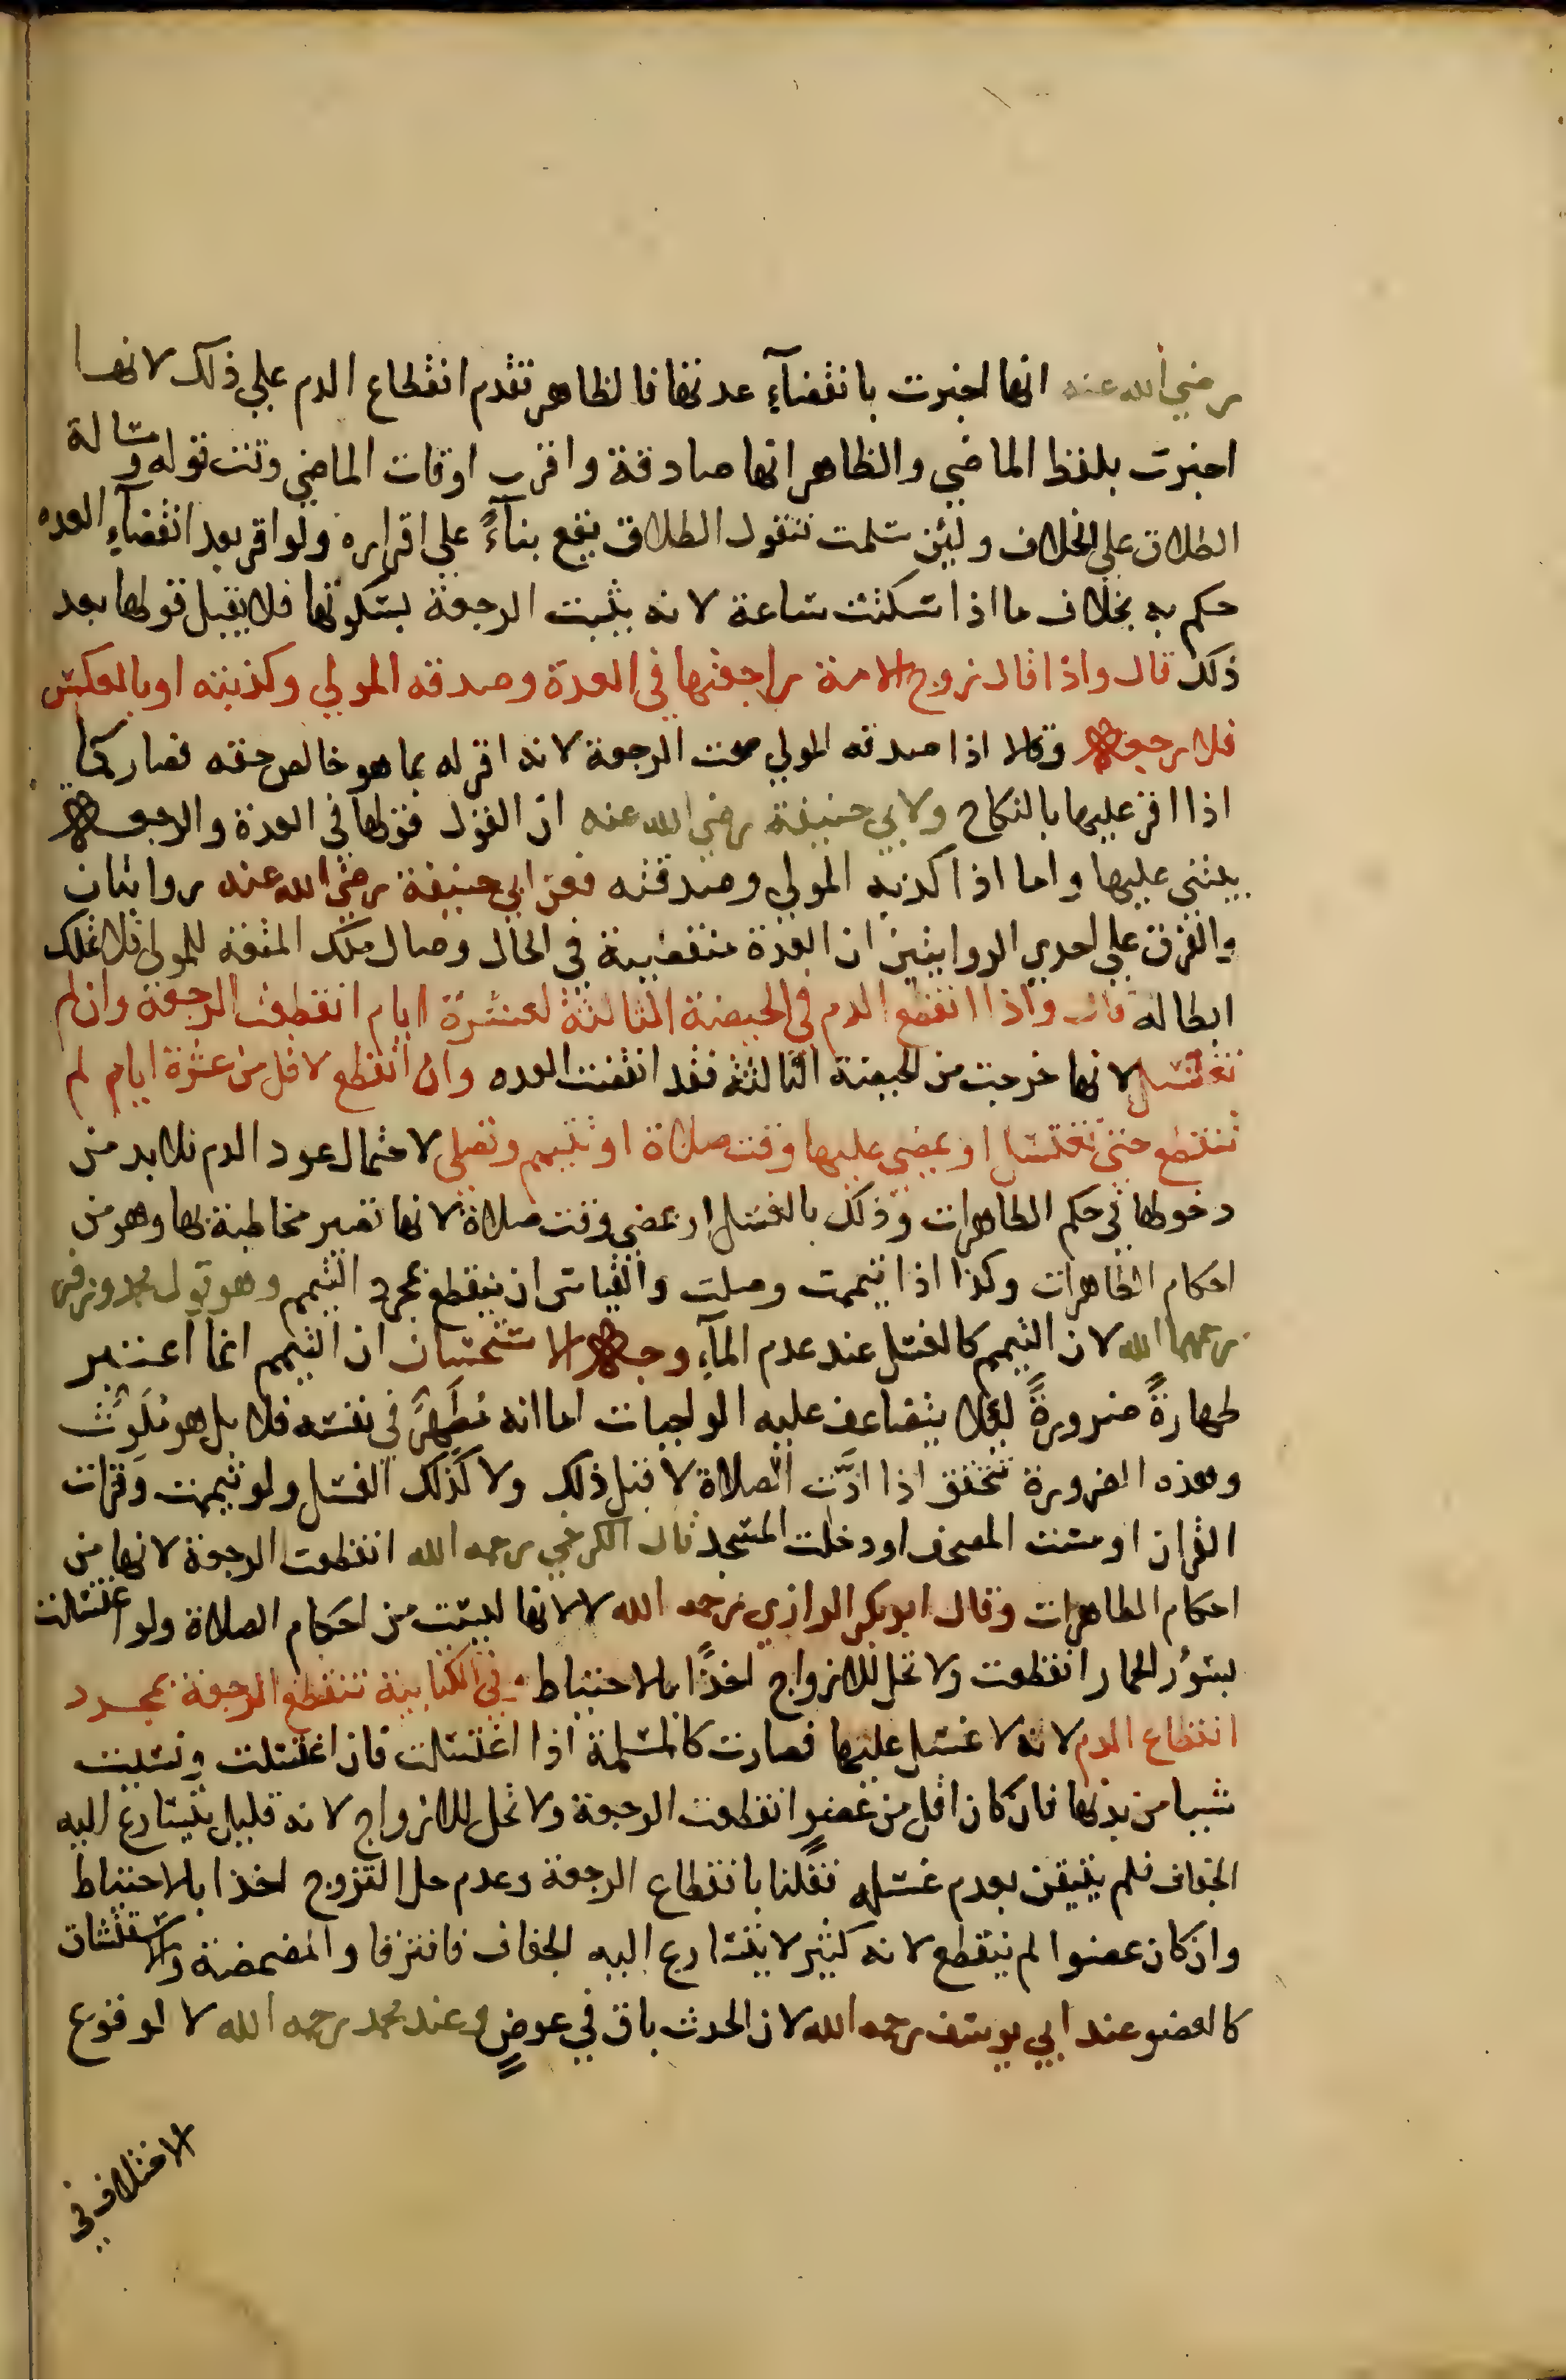 رضي الله عنه انها اخبرت بانقضآءِ عدتها فالظاهر تقدم انقطاع الدم علي ذلك لانها
اخبرت بلفظ الماضي والظاهر انها صادقة واقرب اوقات الماضي وقت قوله ومسالة
الطلاق على الخلاف ولئن سلمت فنقول الطلاق يقع بناءً علي اقراره ولو اقر بعد انقضآءِ العده
حكم به بخلاف ما اذا سكتت ساعة لانه يثبت الرجعة بسكوتها فلا يقبل قولها بعد
ذلك قال واذا قال زوج الامة راجعتها في العدة وصدقه المولي وكذبته او بالعكس
فلا رجعة وقالا اذا صدقه المولي صحت الرجعة لانه اقر له بما هو خالص حقه فصار كما
اذا اقر عليها بالنكاح ولابي حنيفة رضي الله عنه ان القول قولها في العدة والرجعة
يبتني عليها واما اذا كذبه المولي وصدقته فعن ابي حنيفة رضي الله عنه روايتان
والفرق علي احدي الروايتين ان العدة منقضية في الحال وصار ملك المتعة للمولي فلا تملك
ابطاله قال واذا انقطع الدم في الحيضة الثالثة لعشرة ايام انقطعت الرجعة وان لم
تغتسل لانها خرجت من الحيضة الثالثة فقد انقضت العده وان انقطع لاقل من عشرة ايام لم
تنقطع حتى تغتسل او يمضي عليها وقت صلاة او تتيمم وتصلي لاحتمال عود الدم فلا بد من
دخولها في حكم الطاهرات وذلك بالغسل او بمضي وقت صلاة لانها تصير مخاطبة بها وهو من
احكام الطاهرات وكذا اذا تيممت وصلت والقياس ان ينقطع بمجرد التيمم وهو قول محمد وزفر
رحمهما الله لان التيمم كالغسل عند عدم المآءِ وجه الاستحسان ان التيمم انما اعتبر
طهارةً ضرورةً لئلا يتضاعف عليه الواجبات اما انه مُطَهِّر في نفسه فلا بل هو مُلَوِّث
وهذه الضرورة تتحقق اذا ادَّت الصلاة لا قبل ذلك ولا كذلك الغسل ولو تيممت وقرات
القران او مست المصحف او دخلت المسجد قال الكرخي رحمه الله انقطعت الرجعة لانها من
احكام الطاهرات وقال ابو بكر الرازي رحمه الله لا لانها ليست من احكام الصلاة ولو اغتسلت
بسؤر الحمار انقطعت ولا تحل للازواج اخذًا بالاحتياط وفي الكتابية تنقطع الرجعة بمجرد
انقطاع الدم لانه لا غسل عليها فصارت كالمسلمة اذا اغتسلت فان اغتسلت ونسيت
شيا من بدنها فان كان اقل من عضوٍ انقطعت الرجعة ولا تحل للازواج لانه قليل يتسارع اليه
الجفاف فلم يتيقن بعدم غسله فقلنا بانقطاع الرجعة وعدم حل التزوج اخذا بالاحتياط
وان كان عضوا لم ينقطع لانه كثير لا يتسارع اليه الجفاف فافترقا والمضمضة والاستنشاق
كالعضو عند ابي يوسف رحمه الله لان الحدث باق في عوضٍ وعند محمد رحمه الله لا لوقوع
الاختلاف في